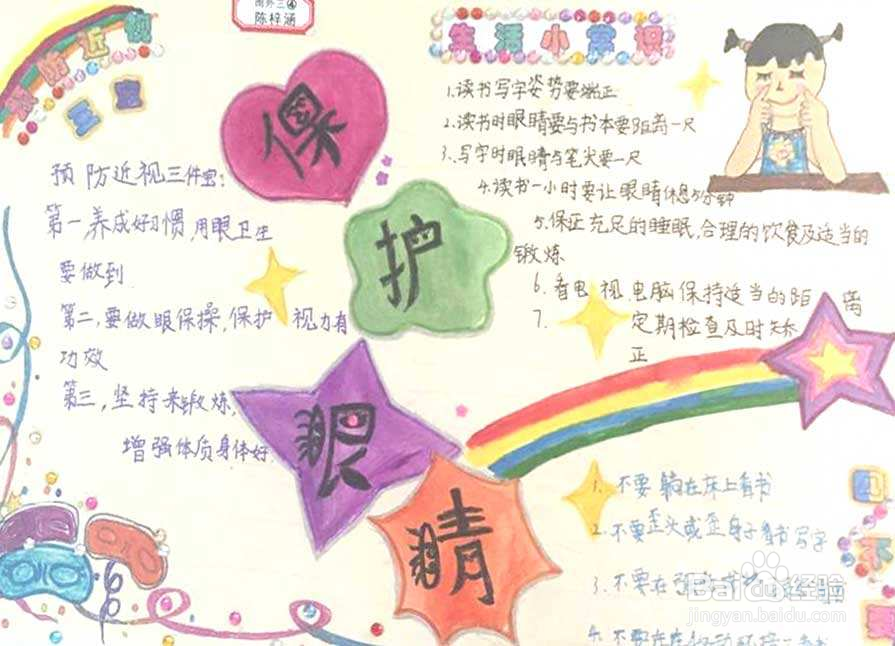 南外三④
陈梓涵
防近视
三宝
预防近视三件宝:
第一,养成好习惯,用眼卫生
要做到
第二,要做眼保操,保护视力有
功效
第三,坚持来锻炼,
增强体质身体好
保
护
眼
睛
生活小常识
1.读书写字姿势要端正
2.读书时眼睛要与书本要距离一尺
3.写字时眼睛与笔尖要一尺
4.读书一小时要让眼睛休息
5.保证充足的睡眠,合理的饮食及适当的
锻炼
6.看电视电脑保持适当的距离
7.定期检查及时矫
正
四不要
1.不要躺在床上看书
2.不要歪头或歪身子看书写字
3.不要在
4.不要在
Baidu经验
jingyan.baidu.com